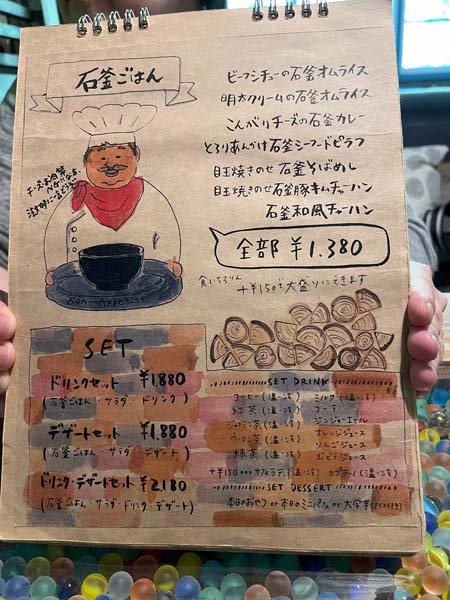 石釜ごはん
ビーフシチューの石釜オムライス
明太クリームの石釜オムライス
こんがりチーズの石釜カレー
とろりあんかけ石釜シーフードピラフ
目玉焼きのせ石釜そばめし
目玉焼きのせ石釜豚キムチャーハン
石釜和風チャーハン
全部 ¥1.380
+¥150で大盛りにできます
Bon appetit
SET
ドリンクセット ¥1,880
(石釜ごはん・サラダ・ドリンク)
デザートセット ¥1,880
(石釜ごはん・サラダ・デザート)
ドリンク・デザートセット ¥2,180
(石釜ごはん・サラダ・ドリンク・デザート)
SET DRINK
コーヒー(温・冷) ミルク(温・冷)
紅茶(温・冷) コーラ
ジャスミン茶(温・冷) ジンジャーエール
ウーロン茶(温・冷) オレンジジュース
緑茶(温・冷) りんごジュース
ぶどうジュース
+¥150 カフェラテ(温・冷) カプチーノ(温・冷)
SET DESSERT
本日のおやつ or 本日のミニパフェ or 大学芋(アイス付き)